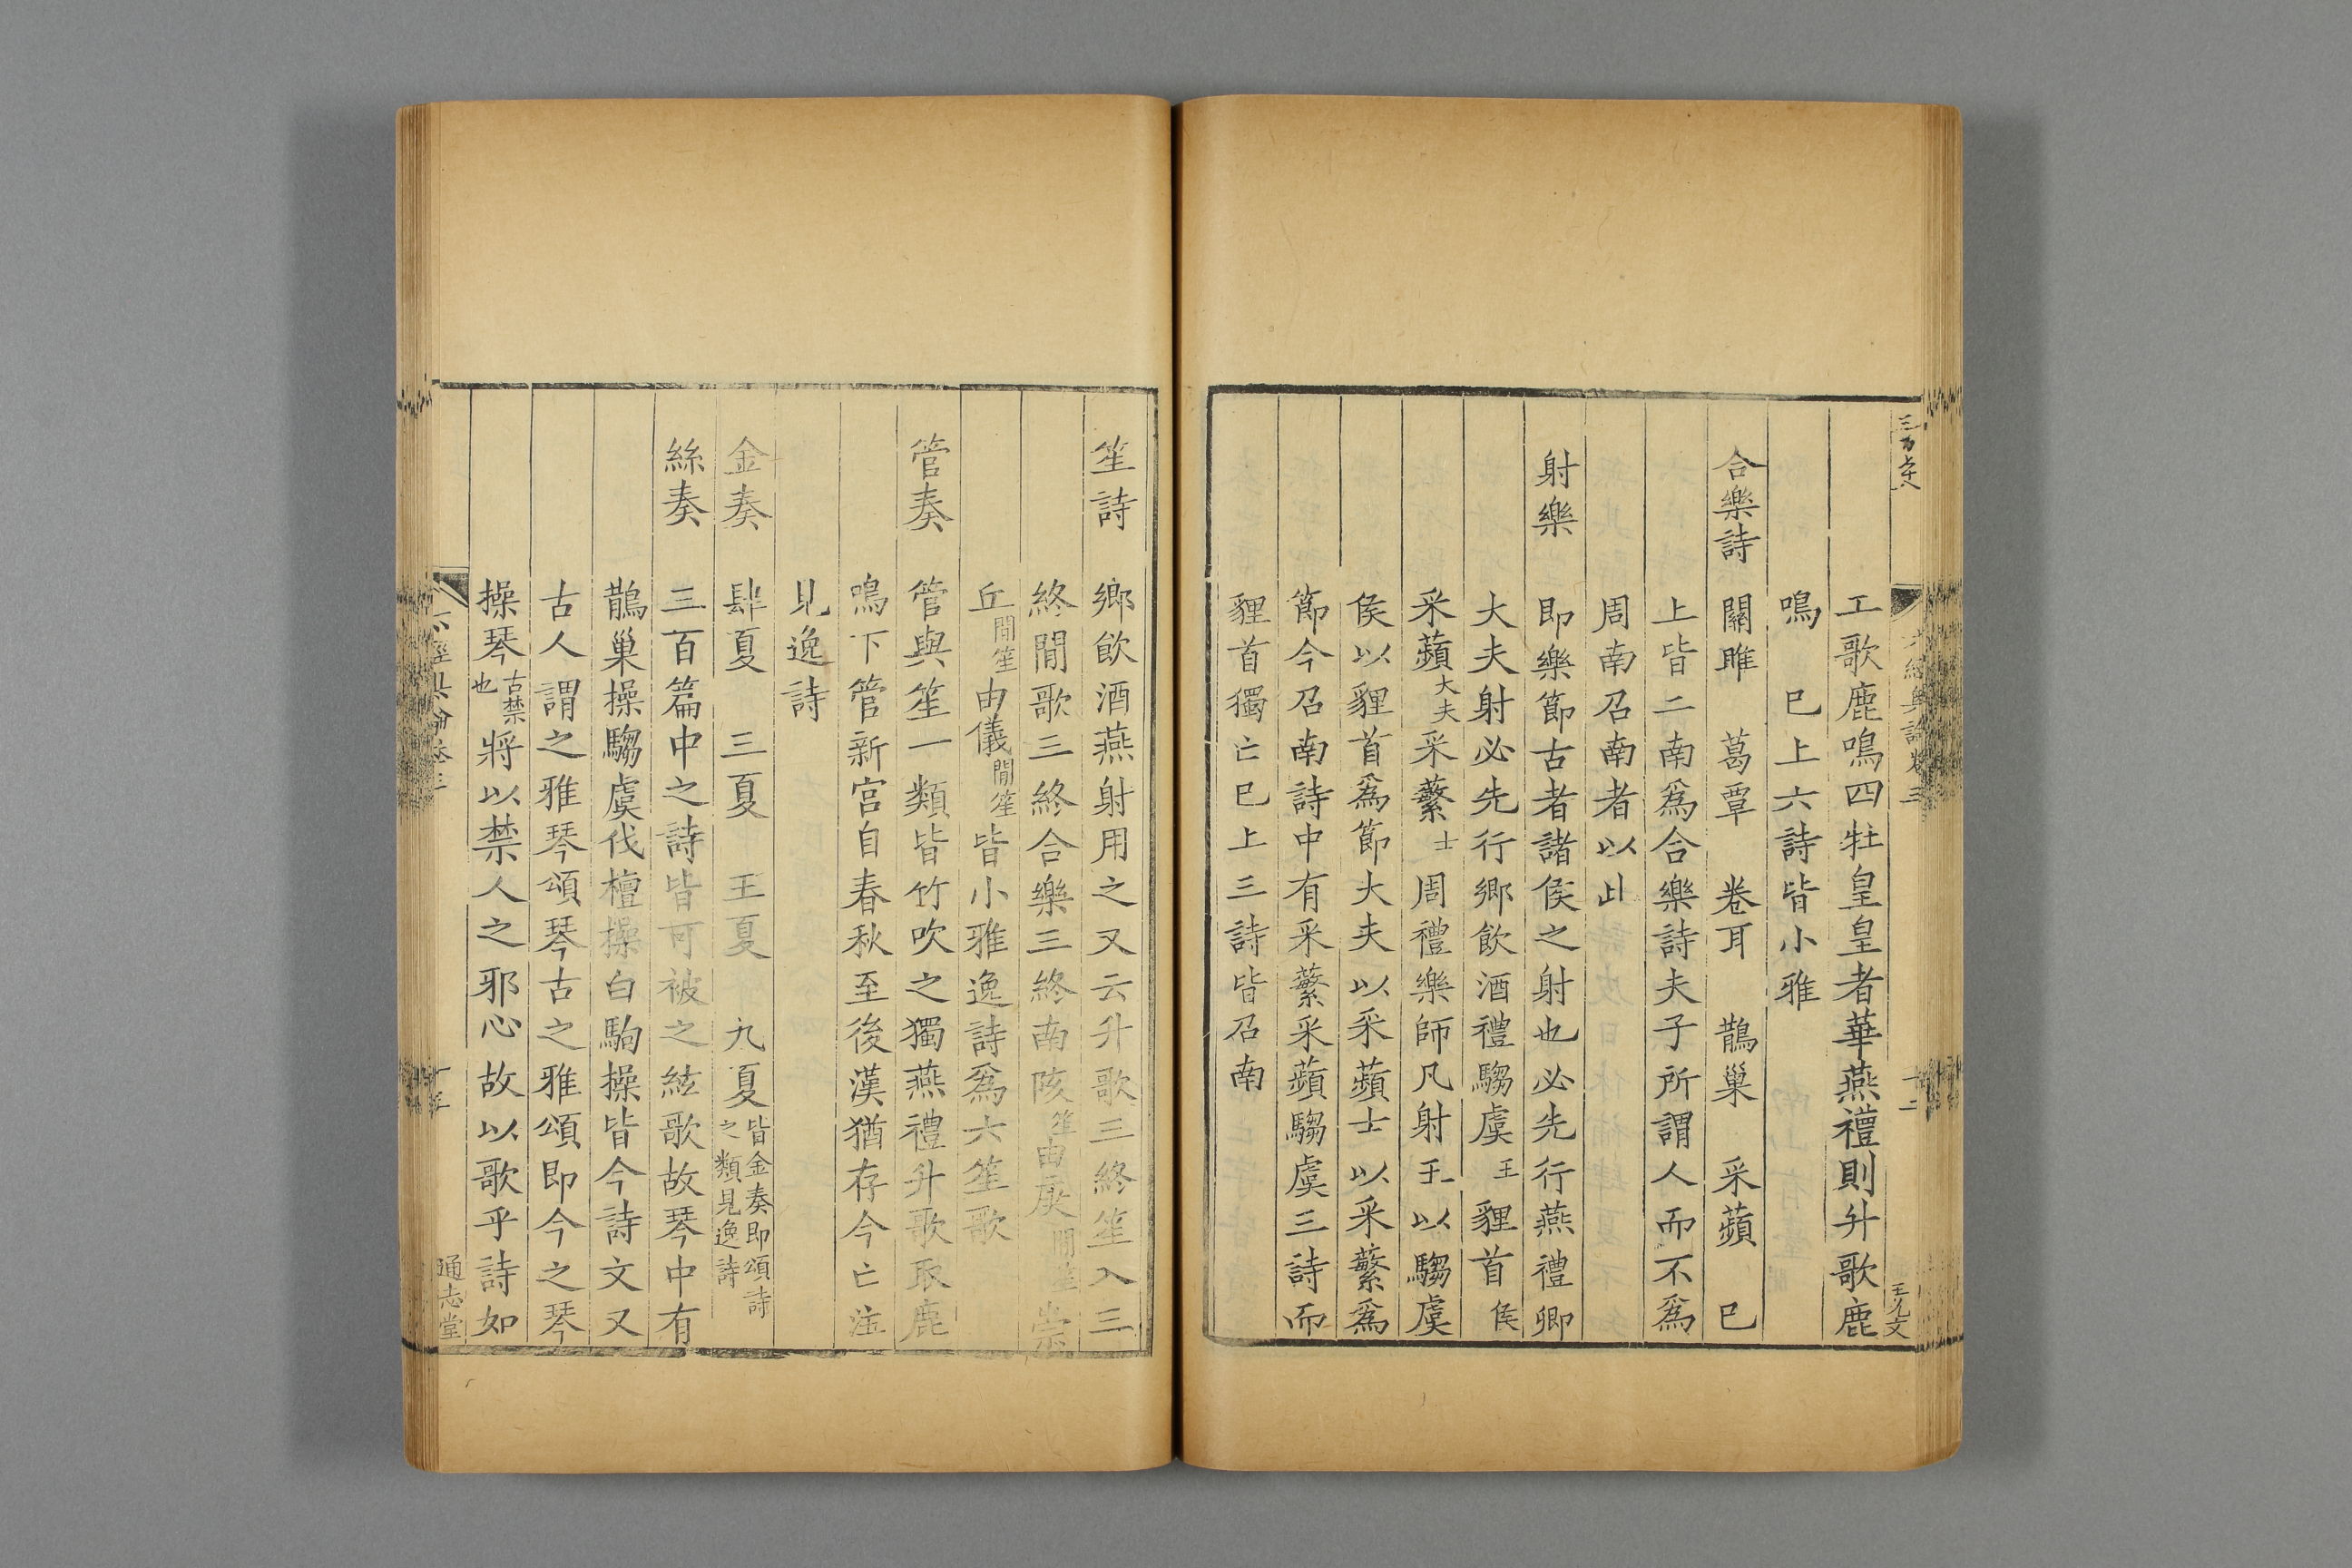 工歌鹿鳴四牡皇皇者華燕禮則升歌鹿
鳴 已上六詩皆小雅
合樂詩 關雎 葛覃 卷耳 鵲巢 采蘋 已
上皆二南爲合樂詩夫子所謂人而不爲
周南召南者以此
射樂 即樂節古者諸侯之射也必先行燕禮卿
大夫射必先行鄉飲酒禮騶虞王貍首侯
采蘋大夫采蘩士周禮樂師凡射王以騶虞
侯以貍首爲節大夫以采蘋士以采蘩爲
節今召南詩中有采蘩采蘋騶虞三詩而
貍首獨亡已上三詩皆召南
笙詩 鄉飲酒燕射用之又云升歌三終笙入三
終間歌三終合樂三終南陔笙由庚間笙崇
丘間笙由儀間笙皆小雅逸詩爲六笙歌
管奏 管與笙一類皆竹吹之獨燕禮升歌取鹿
鳴下管新宮自春秋至後漢猶存今亡注
見逸詩
金奏 肆夏 三夏 王夏 九夏皆金奏即頌詩之類見逸詩
絲奏 三百篇中之詩皆可被之絃歌故琴中有
鵲巢操騶虞伐檀操白駒操皆今詩文又
古人謂之雅琴頌琴古之雅頌即今之琴
操琴古禁也將以禁人之邪心故以歌乎詩如
通志堂